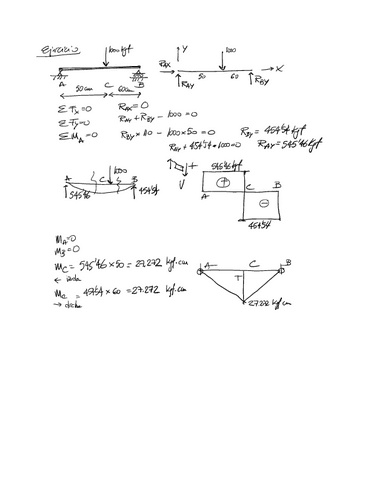 Ejercicio
1000 kgf
A C B
50cm 60cm
Y
RAX 100 X
RAY 50 60 RBY
ΣFx=0 RAX = 0
ΣFy=0 RAY + RBY - 1000 = 0
ΣMA=0 RBY × 110 - 1000×50 = 0 RBY = 454'54 kgf
RAY + 454'54 - 1000 = 0 RAY = 545'46 kgf
A C 1000 B
545'46 454'54
+ V
545'46 kgf
+ C B
-
454'54
MA=0
MB=0
MC = 545'46 × 50 = 27.272 kgf.cm
← izda
MC = 454'54 × 60 = 27.272 kgf.cm
→ dcha
A C B
T
27.272 kgf.cm